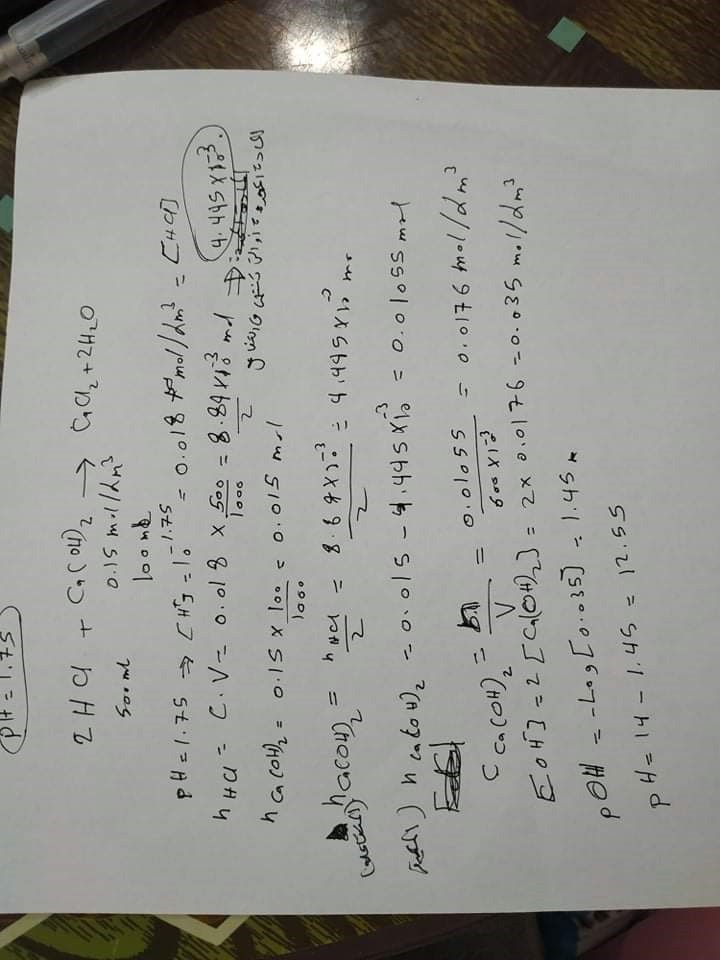 PH = 1.75
2 HCl + Ca(OH)₂ → CaCl₂ + 2H₂O
500 ml 0.15 mol/dm³
100 ml
PH = 1.75 ⇒ [H⁺] = 10⁻¹·⁷⁵ = 0.018 mol/dm³ = [HCl]
n HCl = C.V = 0.018 × 500/1000 = 8.89 × 10⁻³ mol / 2 → 4.445 × 10⁻³.
n Ca(OH)₂ = 0.15 × 100/1000 = 0.015 mol
n Ca(OH)₂ = n HCl / 2 = 8.89 × 10⁻³ / 2 = 4.445 × 10⁻³ mo
n Ca(OH)₂ = 0.015 - 4.445 × 10⁻³ = 0.01055 mol
C Ca(OH)₂ = n/V = 0.01055 / 600 × 10⁻³ = 0.0176 mol/dm³
[OH⁻] = 2 [Ca(OH)₂] = 2 × 0.0176 = 0.035 mol/dm³
pOH = -Log [0.035] = 1.45
pH = 14 - 1.45 = 12.55